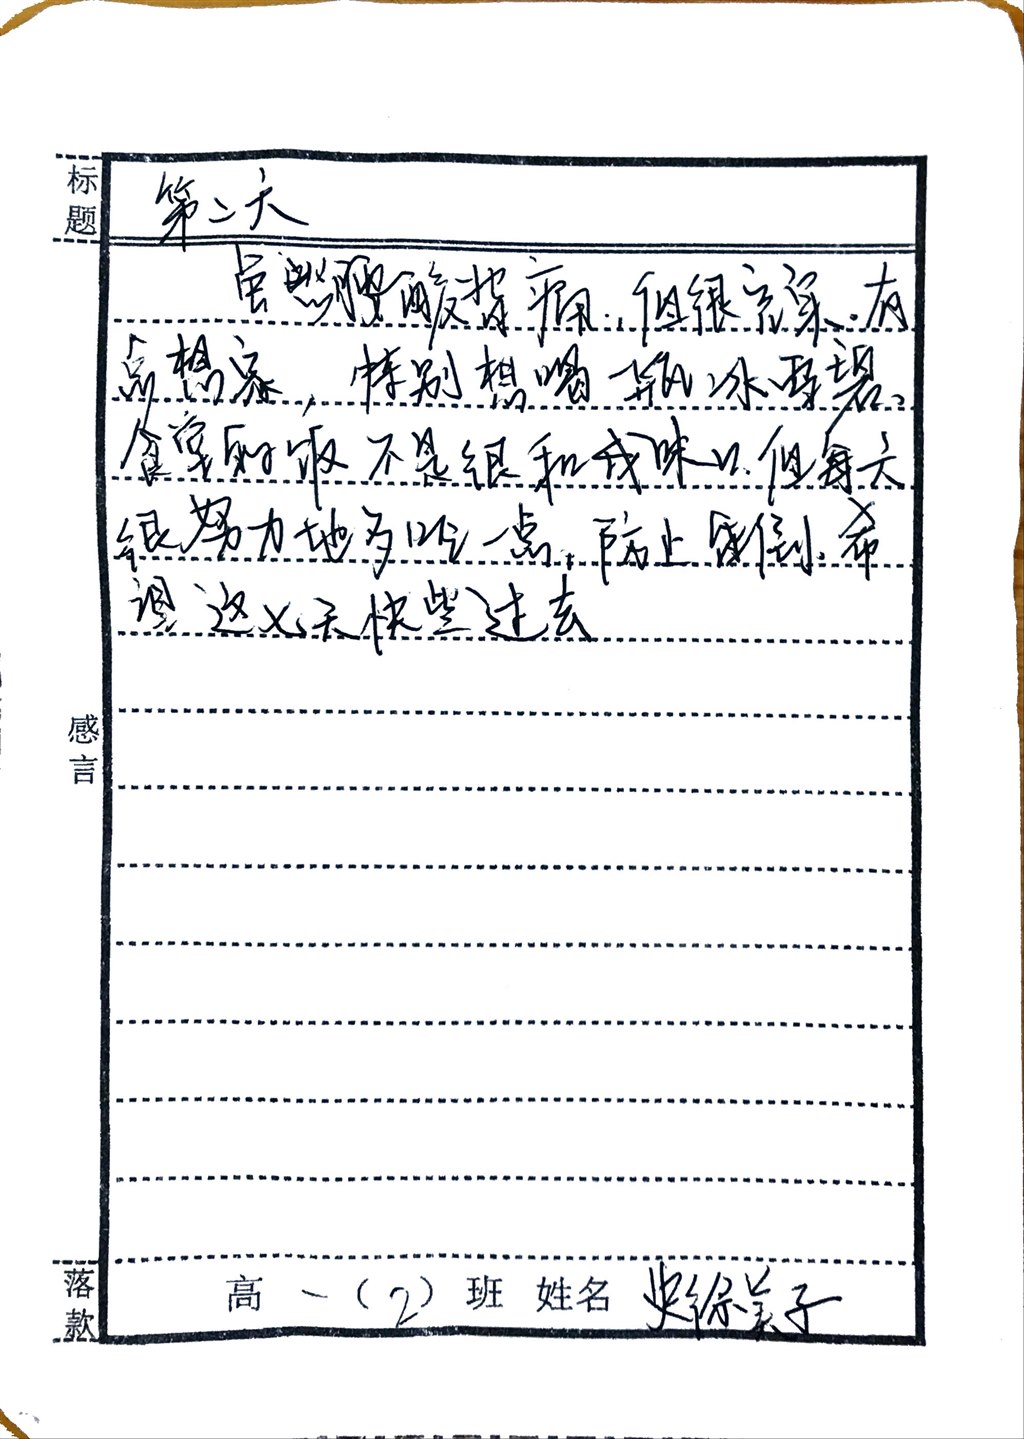 标题
第二天
虽然腰酸背痛,但很充实.有
点想家,特别想喝一瓶冰雪碧、
食堂的饭不是很和我味口.但每天
很努力地多吃一点,防止晕倒.希
望这七天快些过去
感言
落款
高一(2)班 姓名 史徐美子